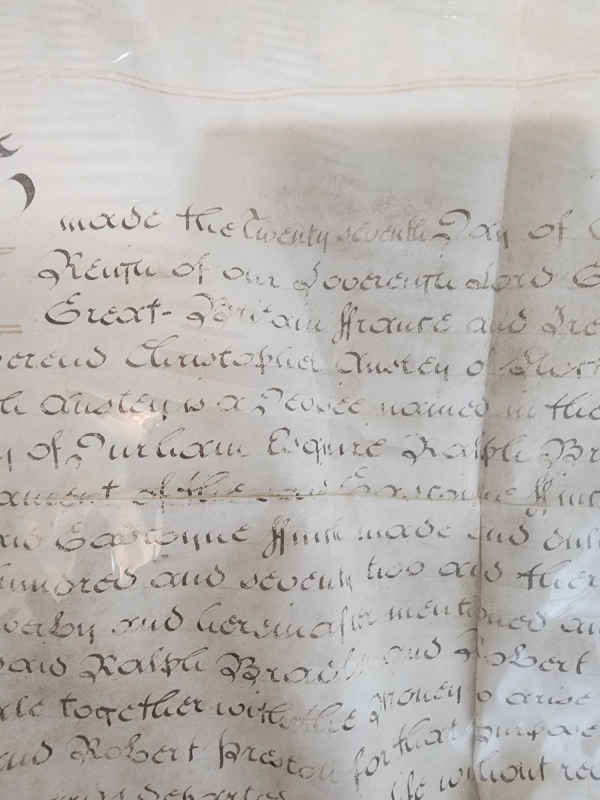 made the Twenty seventh Day of
Reign of our Sovereign Lord G
Great-Britain ffrance and Ire
verend Christopher Anstey of
h Anstey is a Devisee named in the
y of Durham Esquire Ralph Br
ament of the said Gascoyne ffinc
aid Gascoyne ffinch made and
hundred and seventy two and ther
hereinafter mentioned an
said Ralph Brad and Robert
together with the Money to arise
and Robert Preston for that purpose
without re